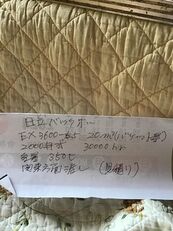 日立バックホー
EX3600-6.5 20m³(バケット容)
2000年式 30000hr
重量 350t
関東方面渡し (見積り)